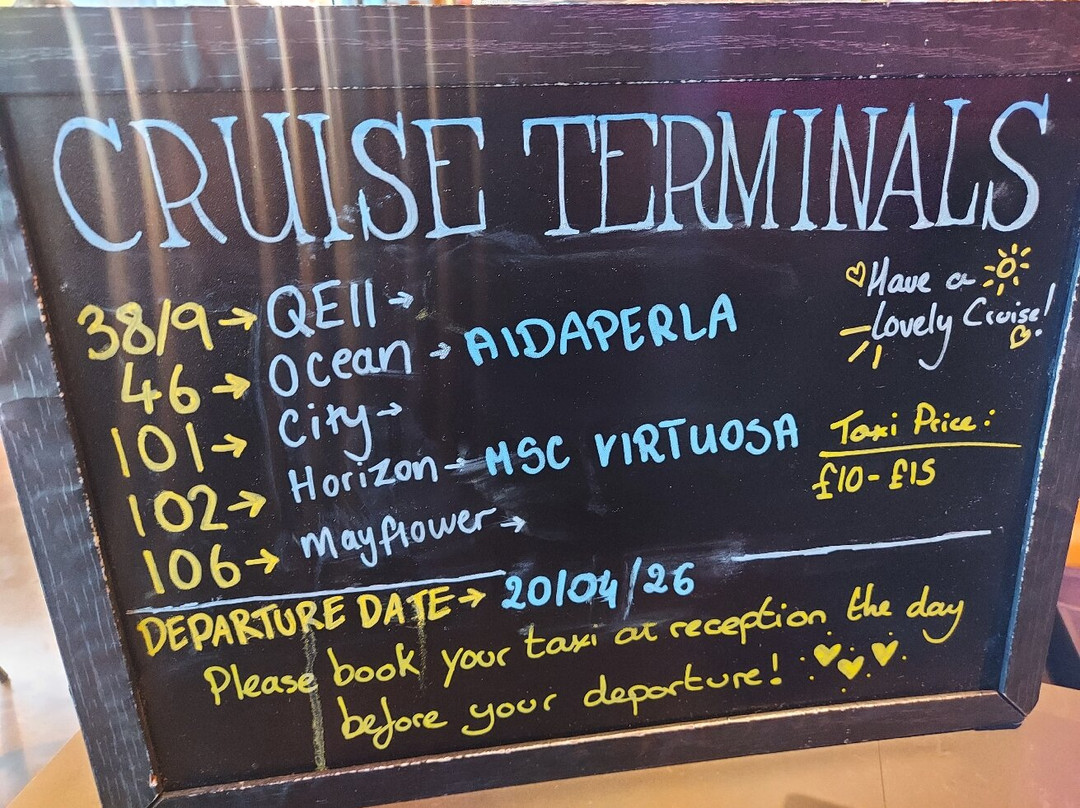 CRUISE TERMINALS
38/9 → QEII →
46 → Ocean → AIDAPERLA
101 → City →
102 → Horizon → MSC VIRTUOSA
106 → Mayflower →
Have a
lovely Cruise!
Taxi Price:
£10 - £15
DEPARTURE DATE → 20/04/26
Please book your taxi at reception the day
before your departure!